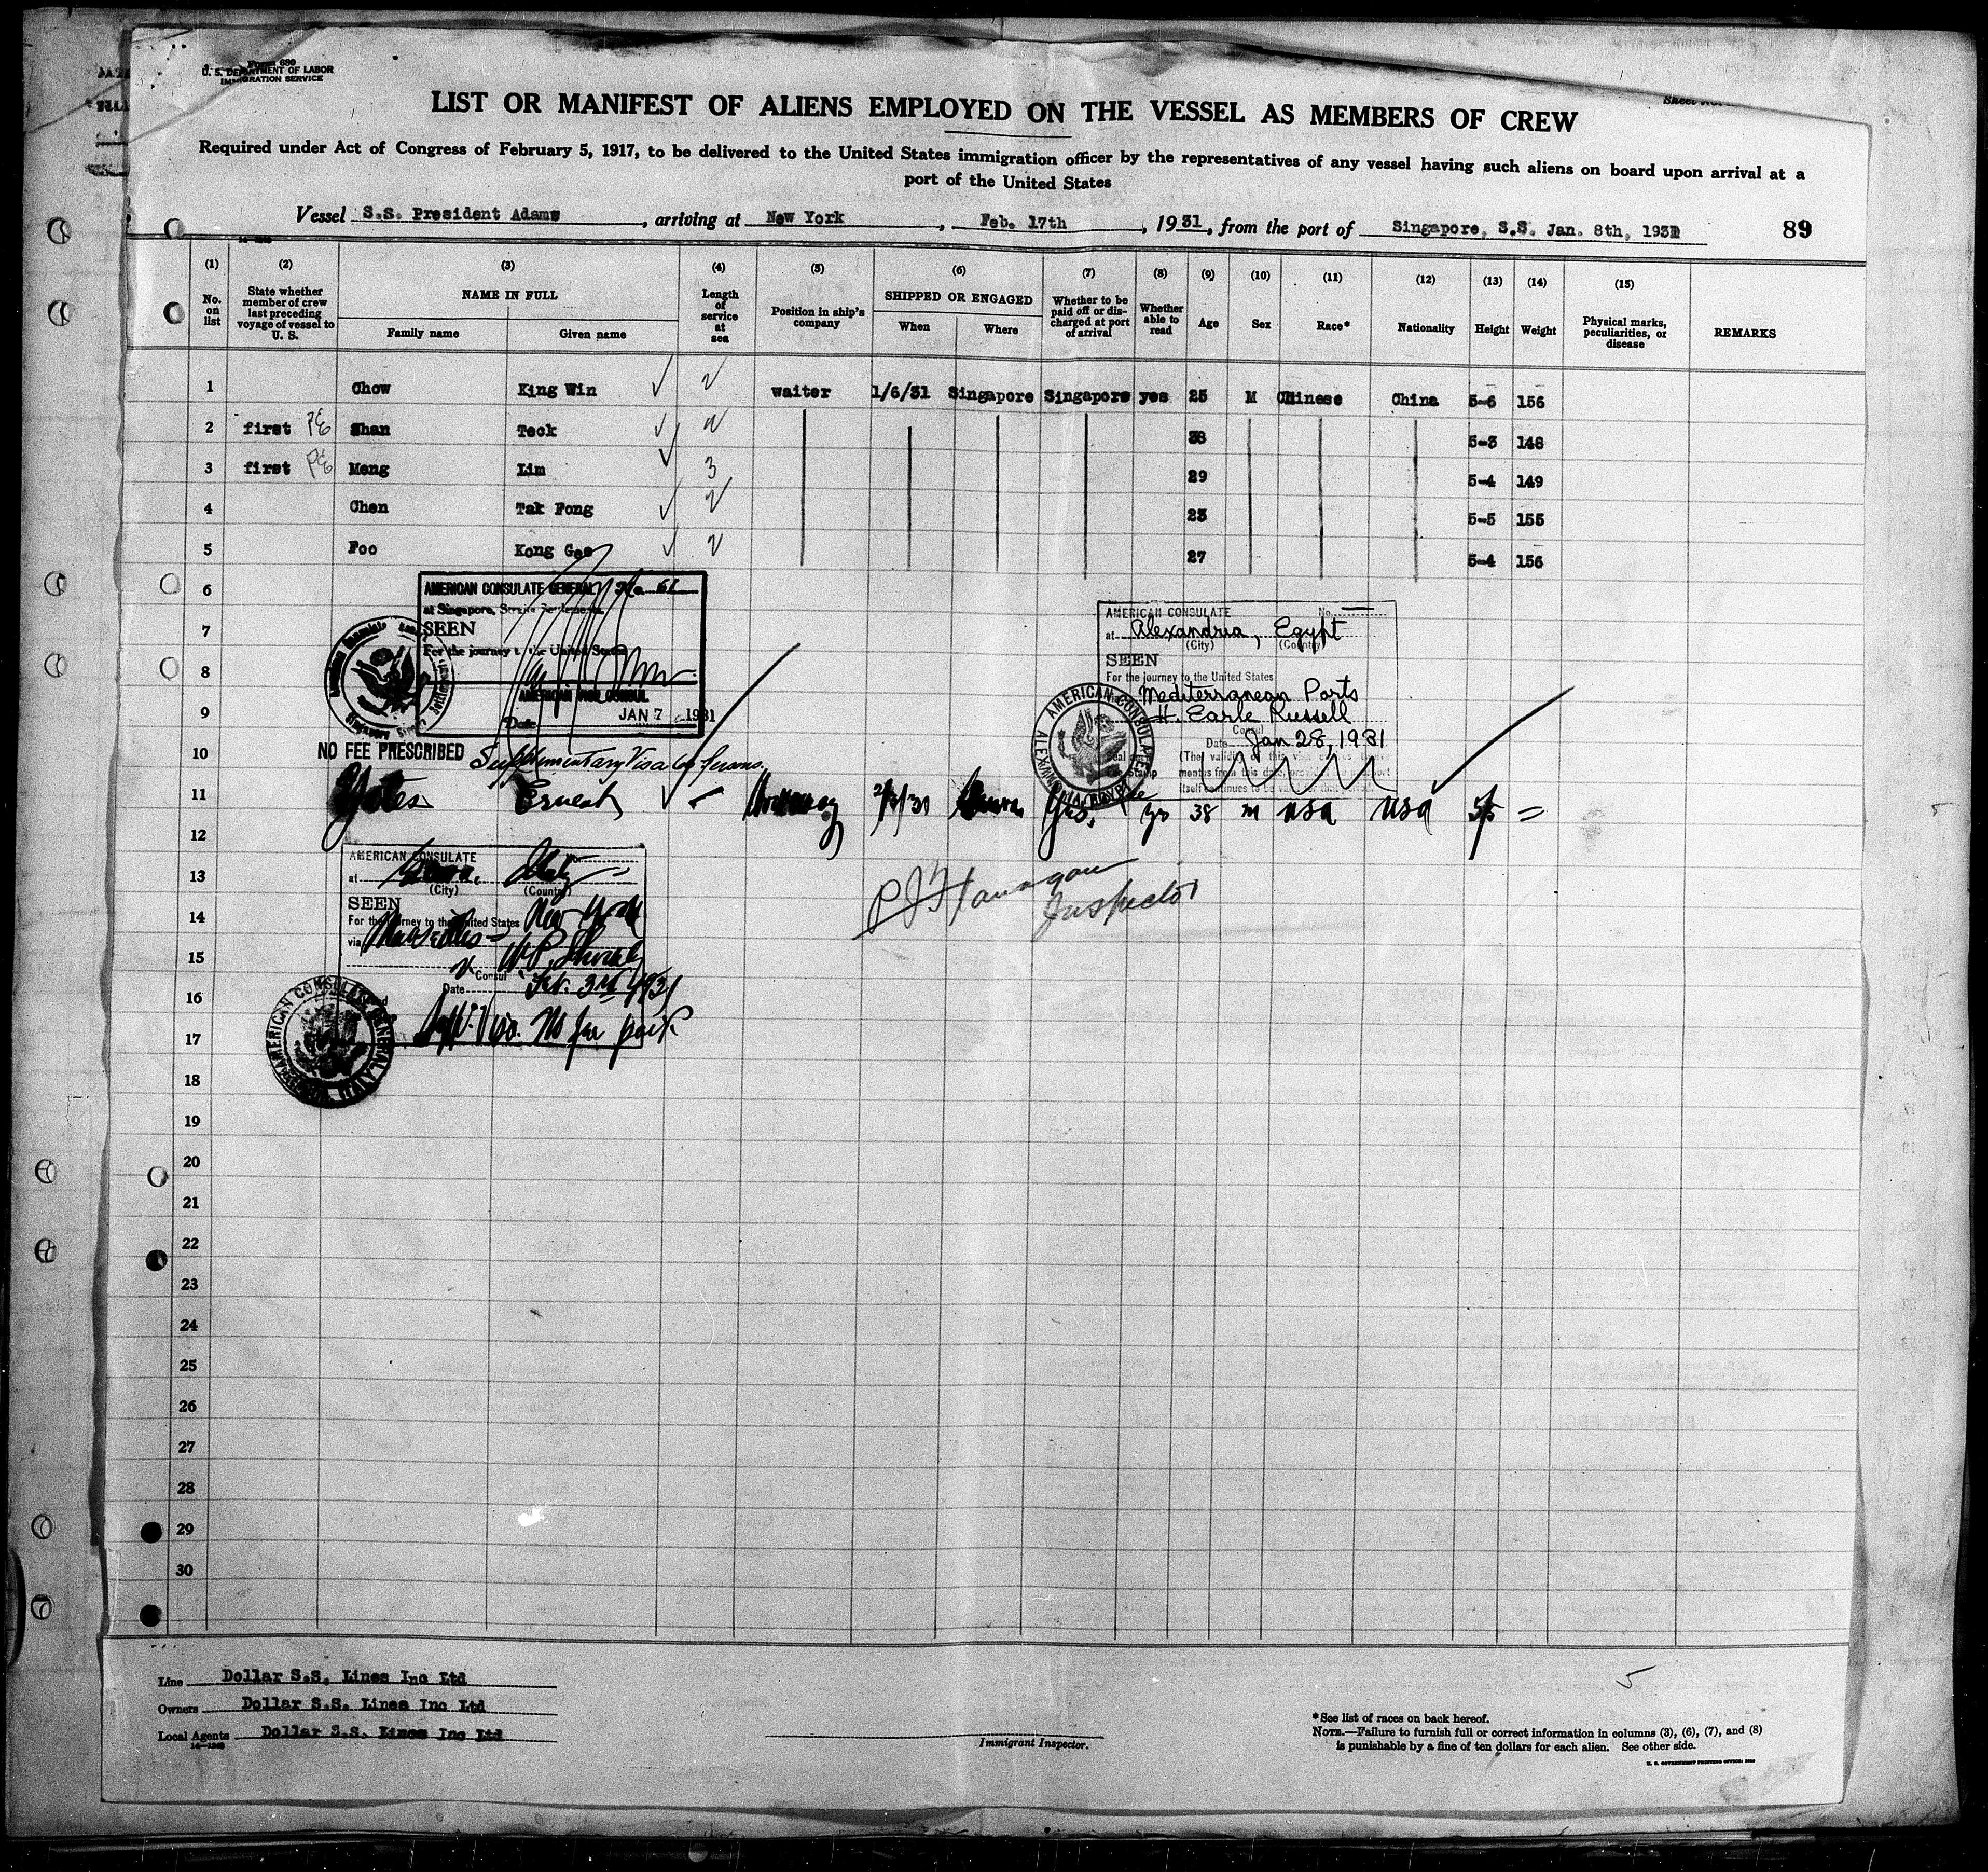 Form 680
U. S. DEPARTMENT OF LABOR
IMMIGRATION SERVICE
LIST OR MANIFEST OF ALIENS EMPLOYED ON THE VESSEL AS MEMBERS OF CREW
Required under Act of Congress of February 5, 1917, to be delivered to the United States immigration officer by the representatives of any vessel having such aliens on board upon arrival at a
port of the United States
Vessel S.S. President Adams, arriving at New York, Feb. 17th, 1931, from the port of Singapore, S.S. Jan. 8th, 1931 89
(1) (2) (3) (4) (5) (6) (7) (8) (9) (10) (11) (12) (13) (14) (15)
No. on list
State whether member of crew last preceding voyage of vessel to U. S.
NAME IN FULL
Family name Given name
Length of service at sea
Position in ship's company
SHIPPED OR ENGAGED
When Where
Whether to be paid off or discharged at port of arrival
Whether able to read
Age Sex Race* Nationality Height Weight
Physical marks, peculiarities, or disease
REMARKS
1 Chow King Win 2 waiter 1/6/31 Singapore Singapore yes 25 M Chinese China 5-6 156
2 first PE Shan Teck 2 38 5-3 148
3 first PE Meng Lim 3 29 5-4 149
4 Chen Tak Fong 2 23 5-5 155
5 Foo Kong Gee 2 27 5-4 156
6
7
8
9
10
AMERICAN CONSULATE GENERAL No. 61
at Singapore, Straits Settlements
SEEN
For the journey to the United States
AMERICAN VICE CONSUL
Date JAN 7 1931
NO FEE PRESCRIBED Supplementary Visa
AMERICAN CONSULATE No.
at Alexandria, Egypt
(City) (Country)
SEEN
For the journey to the United States
Mediterranean Ports
H. Earle Russell
Consul
Date Jan 28, 1931
AMERICAN CONSULATE
ALEXANDRIA, EGYPT
11 Yates Ernest 2/3/31 Yes 38 m USA USA 5/5 =
12
13
14
15
16
17
AMERICAN CONSULATE
at Genoa, Italy
(City) (Country)
SEEN
For the journey to the United States New York
via Marseilles
Consul
Date Feb. 3rd 1931
AMERICAN CONSULATE GENERAL
ITALY
Inspector
18
19
20
21
22
23
24
25
26
27
28
29
30
5
Line Dollar S.S. Lines Inc Ltd
Owners Dollar S.S. Lines Inc Ltd
Local Agents Dollar S.S. Lines Inc Ltd
Immigrant Inspector.
*See list of races on back hereof.
NOTE.—Failure to furnish full or correct information in columns (3), (6), (7), and (8)
is punishable by a fine of ten dollars for each alien. See other side.